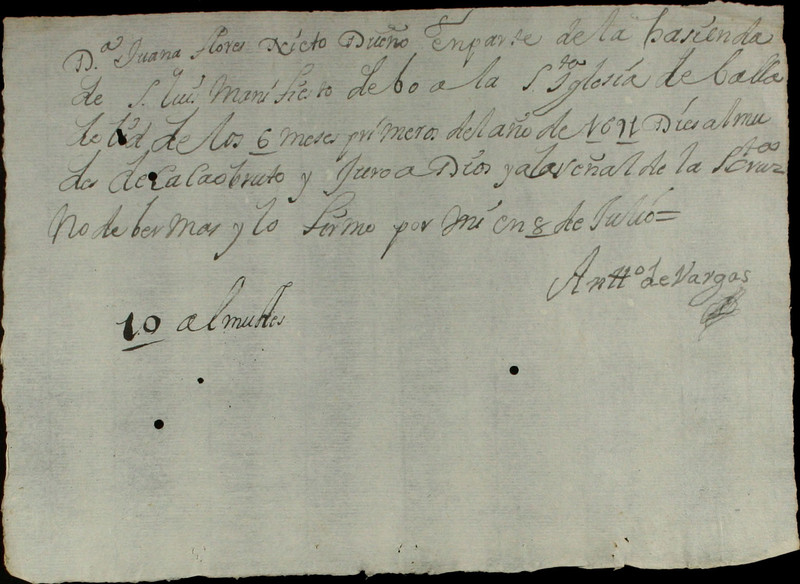 D.ª Juana flores Nieto Dueño en parte de la hasienda
de S. luis Manifiesto debo a la S.ta Iglesia de balla
de los 6 meses primeros del año de Dies almu
des de Cacao bruto y Juro a Dios y a la señal de la S.ta Cruz
No deber mas y lo firmo por mi en 8 de Julio =
Antt.º de Vargas
10 almudes